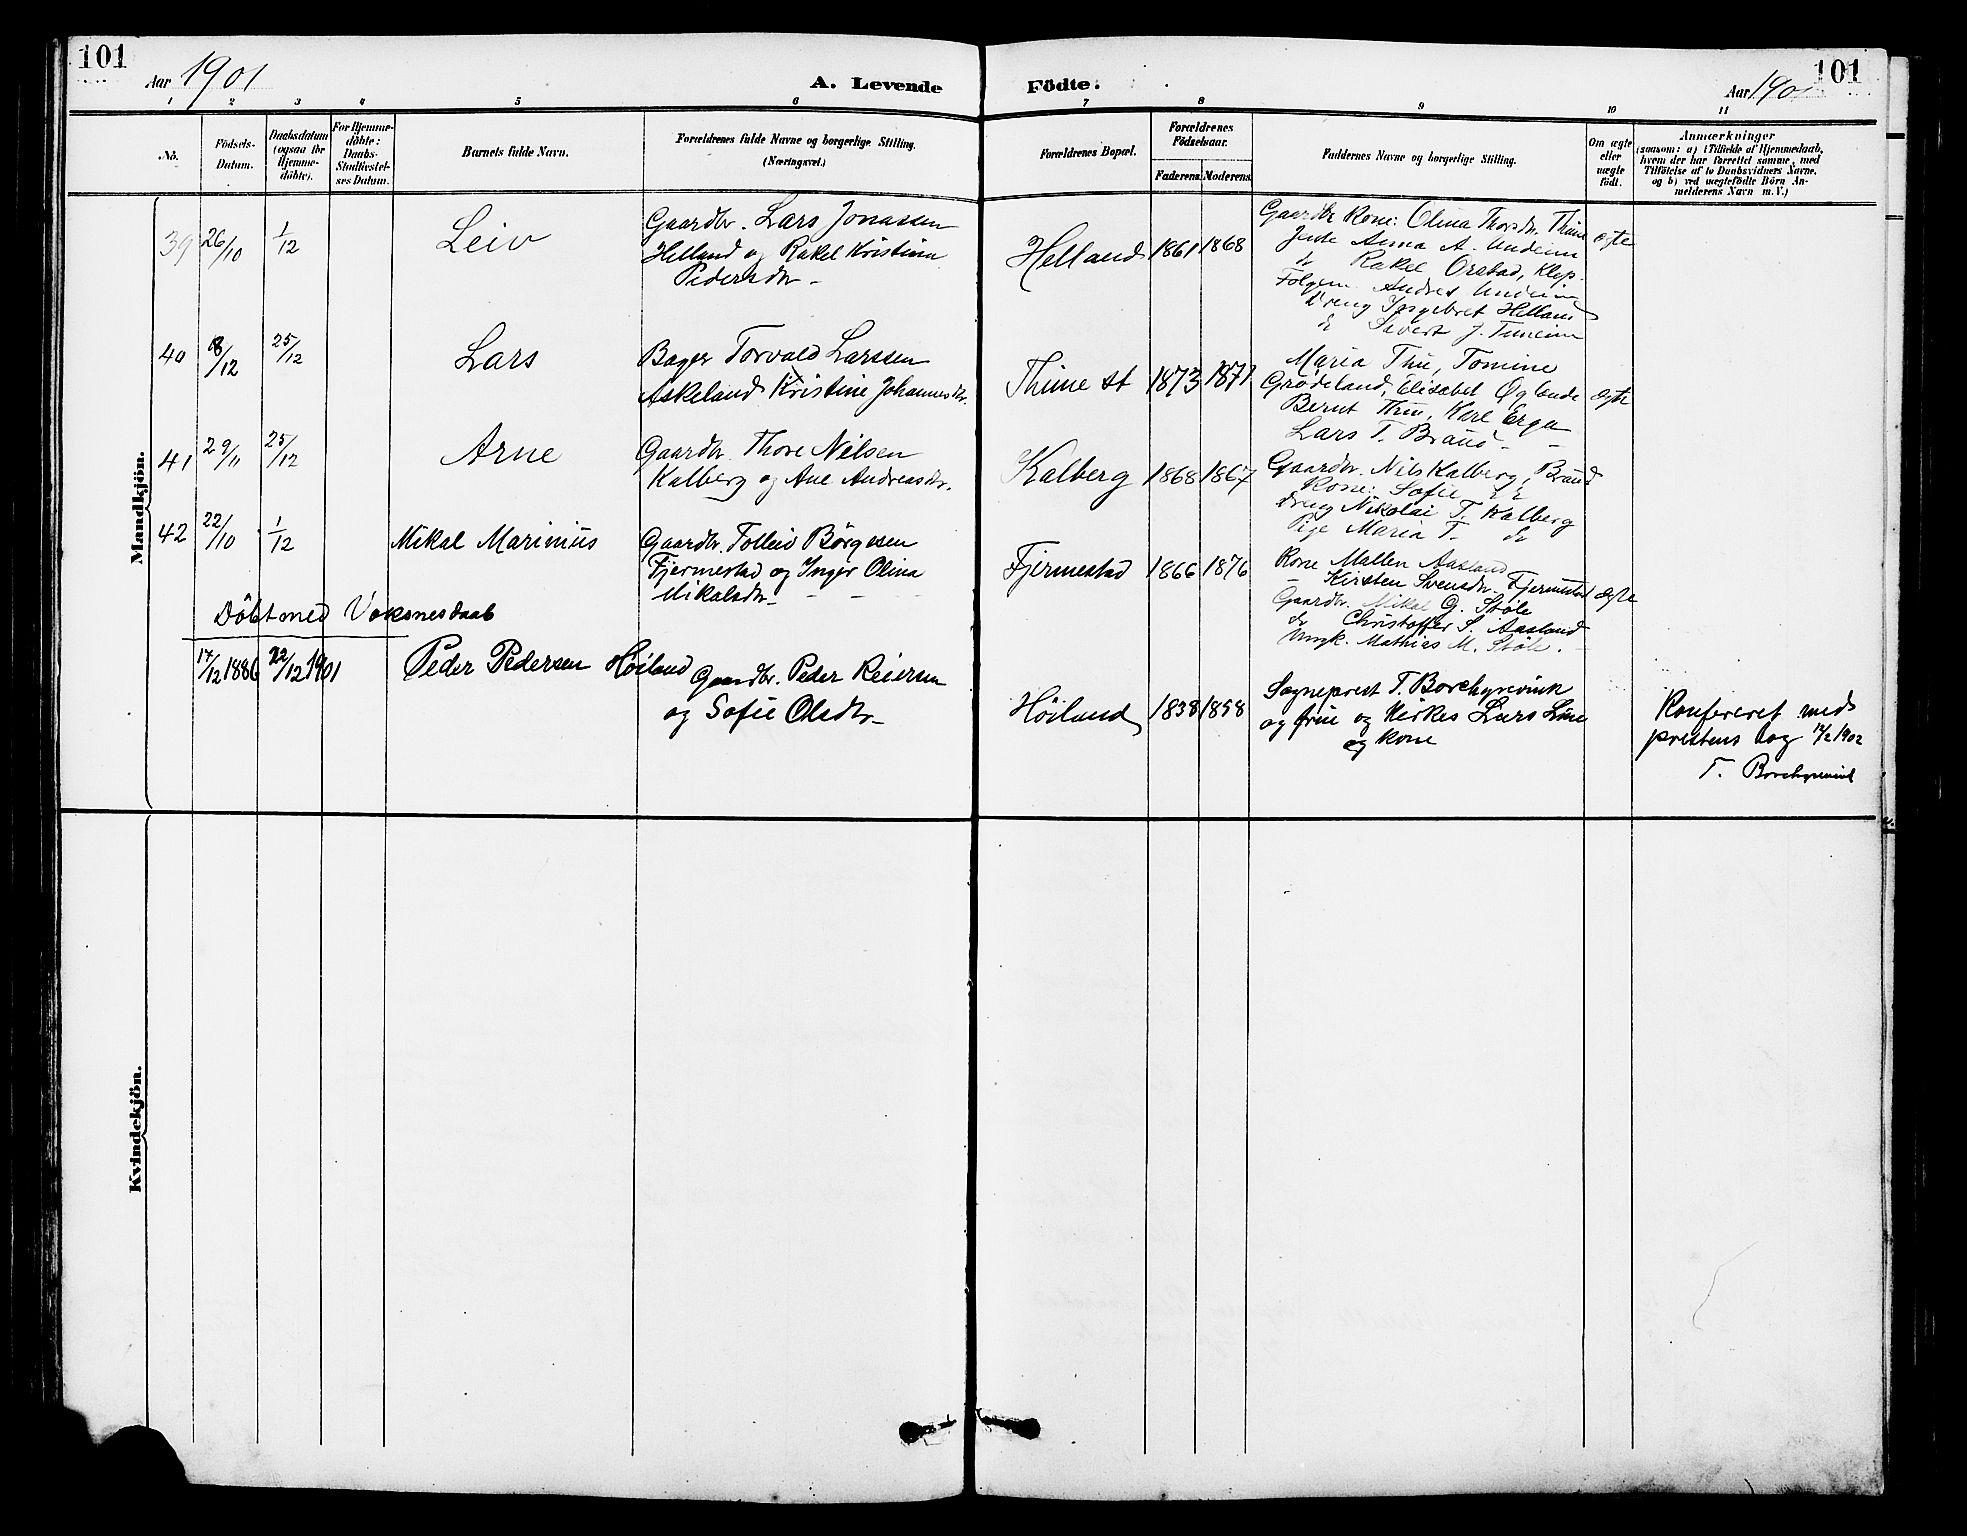 101
Aar 1901
A. Levende Födte.
Aar 1901
101
1 2 3 4 5 6 7 8 9 10 11
No.
Födsels-
Datum.
Daabsdatum
(ogsaa for
Hjemme-
döbte).
For Hjemme-
döbte:
Daabs-
Stadfæstel-
ses Datum.
Barnets fulde Navn.
Forældrenes fulde Navne og borgerlige Stilling.
(Næringsvei.)
Forældrenes Bopæl.
Forældrenes
Födselsaar.
Faderens. Moderens.
Faddernes Navne og borgerlige Stilling.
Om ægte
eller
uægte
födt.
Anmærkninger
(saasom: a) i Tilfælde af Hjemmedaab,
hvem der har forrettet samme, med
Tilföielse af to Daabsvidners Navne,
og b) ved uægtefödte Börn An-
melderens Navn m. V.)
Mandkjön.
39 26/10 1/12 Leiv
Gaardbr. Lars Jonassen
Helland og Rakel Kristine
Pedersdtr.
Helland 1861 1868
Gaardbr Kone: Olina Thorsdr. Thime
Jente Anna A. Undeim
do Rakel Orstad, Klep.
Følgem. Andres Undeim
Dreng Ingebret Helland
do Sivert J. Tuneim
ægte
40 18/12 25/12 Lars
Bager Torvald Larssen
Askeland Kristine Johannesdr.
Thime st 1873 1871
Maria Thu, Tomine
Grødeland, Elisabet Øglænde
Bernt Thu, Karl Erga
Lars T. Braud
ægte
41 29/11 25/12 Arne
Gaardbr. Thore Nilsen
Kalberg og Ane Andreasdr.
Kalberg 1868 1867
Gaardbr. Nils Kalberg, Braud
Kone: Sofie
Dreng Nikolai T. Kalberg
Pige Maria T. do
42 22/10 1/12 Mikal Marinius
Gaardbr. Tolleiv Börgesen
Fjermestad og Inger Olina
Mikalsdr
Fjermestad 1866 1876
Kone Mallen Aasland
Kirsten Svensdr. Fjermestad
Gaardbr. Mikal G. Støle
do Christoffer S. Aasland
Ungk. Mathias M. Støle.
ægte
Döbt med Voksnesdaab
17/12 1886 22/12 1901 Peder Pedersen Høiland
Gaardbr. Peder Reiersen
og Sofie Olsdtr
Høiland 1838 1858
Sogneprest T. Borchgrevink
og frue og Kirkes Lars Line
og kone
Konfereret med
prestens bog 17/2 1902
T. Borchgrevink
Kvindekjön.